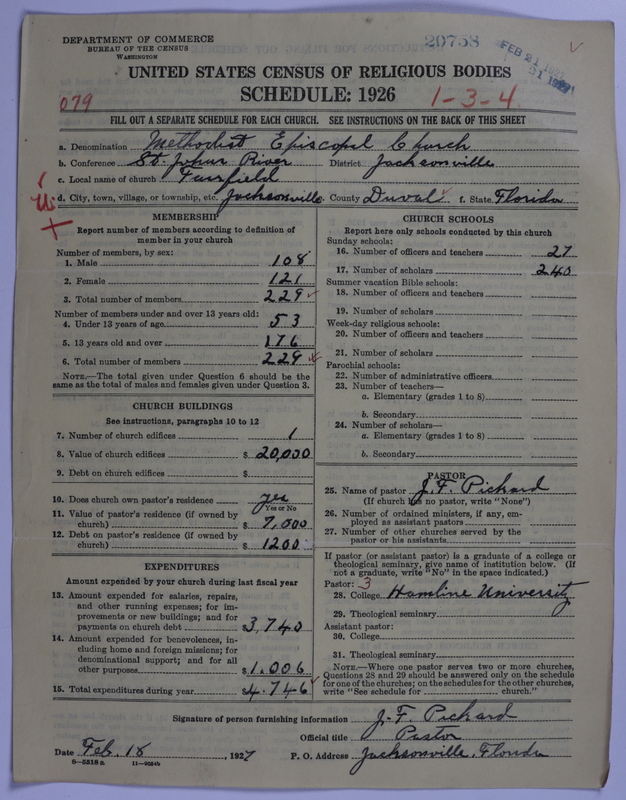 DEPARTMENT OF COMMERCE
BUREAU OF THE CENSUS
WASHINGTON
20758
FEB 21
UNITED STATES CENSUS OF RELIGIOUS BODIES
SCHEDULE: 1926
079
1-3-4
FILL OUT A SEPARATE SCHEDULE FOR EACH CHURCH. SEE INSTRUCTIONS ON THE BACK OF THIS SHEET
a. Denomination Methodist Episcopal Church
b. Conference St. Johns River District Jacksonville
c. Local name of church Fairfield
d. City, town, village, or township, etc. Jacksonville e. County Duval f. State Florida
MEMBERSHIP
Report number of members according to definition of
member in your church
Number of members, by sex:
1. Male 108
2. Female 121
3. Total number of members 229
Number of members under and over 13 years old:
4. Under 13 years of age 53
5. 13 years old and over 176
6. Total number of members 229
NOTE.—The total given under Question 6 should be the
same as the total of males and females given under Question 3.
CHURCH BUILDINGS
See instructions, paragraphs 10 to 12
7. Number of church edifices 1
8. Value of church edifices $ 20,000
9. Debt on church edifices $
10. Does church own pastor's residence yes
Yes or No
11. Value of pastor's residence (if owned by
church) $ 7,000
12. Debt on pastor's residence (if owned by
church) $ 1200
EXPENDITURES
Amount expended by your church during last fiscal year
13. Amount expended for salaries, repairs,
and other running expenses; for im-
provements or new buildings; and for
payments on church debt $3,740
14. Amount expended for benevolences, in-
cluding home and foreign missions; for
denominational support; and for all
other purposes $1,006
15. Total expenditures during year $4,746
CHURCH SCHOOLS
Report here only schools conducted by this church
Sunday schools:
16. Number of officers and teachers 27
17. Number of scholars 240
Summer vacation Bible schools:
18. Number of officers and teachers
19. Number of scholars
Week-day religious schools:
20. Number of officers and teachers
21. Number of scholars
Parochial schools:
22. Number of administrative officers
23. Number of teachers—
a. Elementary (grades 1 to 8)
b. Secondary
24. Number of scholars—
a. Elementary (grades 1 to 8)
b. Secondary
PASTOR
25. Name of pastor J. F. Pickard
(If church has no pastor, write "None")
26. Number of ordained ministers, if any, em-
ployed as assistant pastors
27. Number of other churches served by the
pastor or his assistants
If pastor (or assistant pastor) is a graduate of a college or
theological seminary, give name of institution below. (If
not a graduate, write "No" in the space indicated.)
Pastor: 3
28. College Hamline University
29. Theological seminary
Assistant pastor:
30. College
31. Theological seminary
NOTE.—Where one pastor serves two or more churches,
Questions 28 and 29 should be answered only on the schedule
for one of the churches; on the schedules for the other churches,
write "See schedule for church."
Signature of person furnishing information J. F. Pickard
Official title Pastor
Date Feb. 18, 1927 P. O. Address Jacksonville, Florida